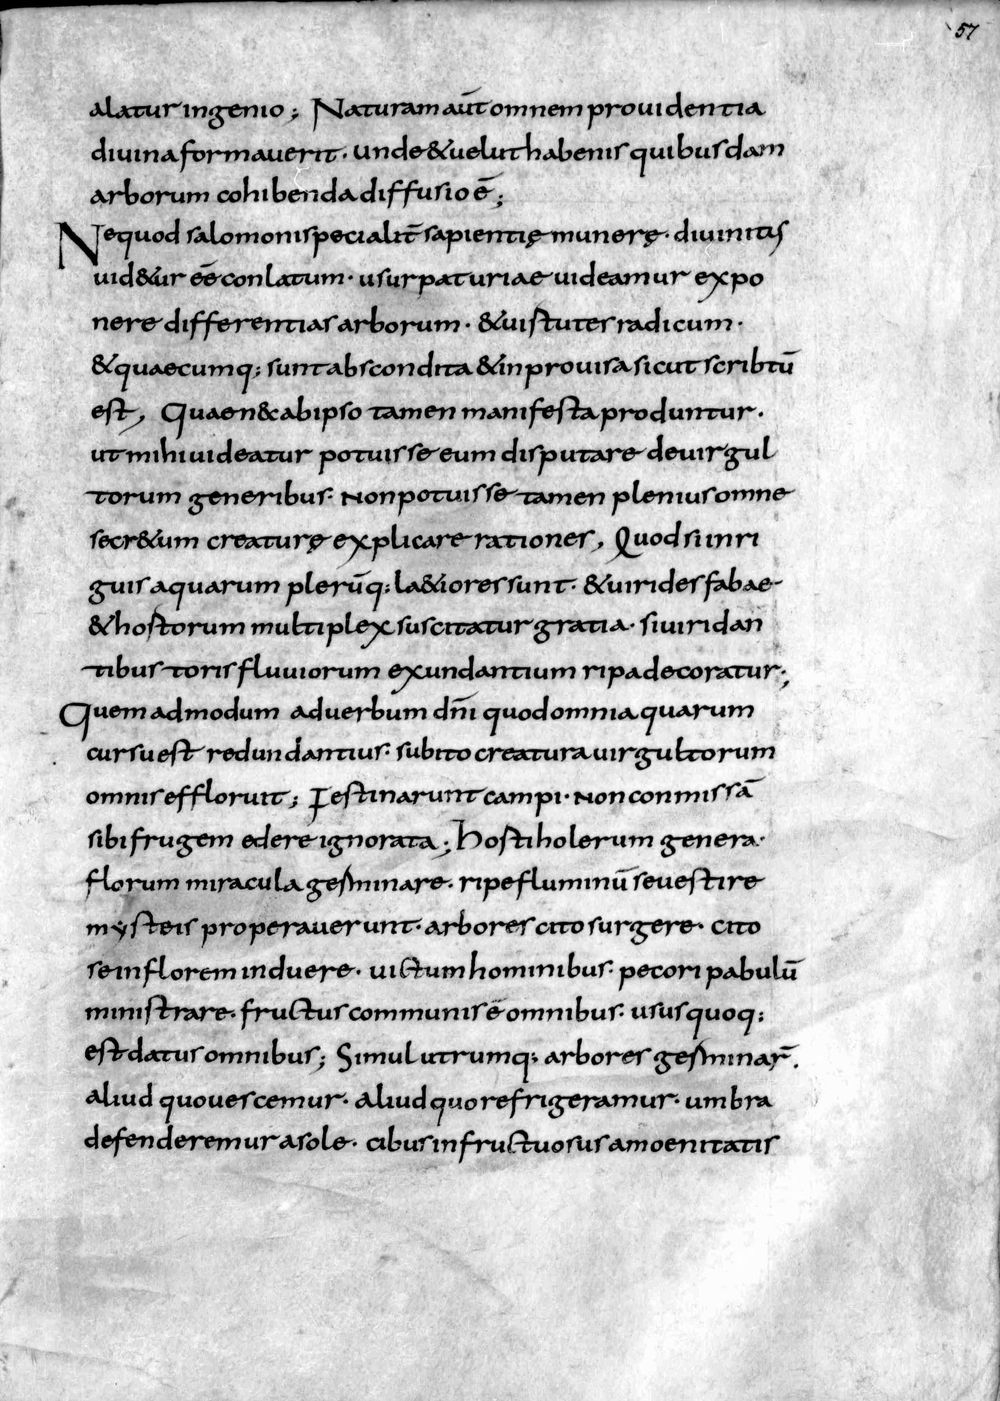 57
alatur ingenio; Naturam aūt omnem prouidentia
diuina formauerit· unde & uelut habenis quibusdam
arborum cohibenda diffusio ē;
Nequod salomoni specialit̄ sapientię munerę· diuinitus
uid&ur eē conlatum· usurpatur iae uideamur expo
nere differentias arborum· & uirtutes radicum·
& quaecumq; sunt abscondita & inprouisa sicut scribtū
est, Quaen& ab ipso tamen manifesta produntur·
ut mihi uideatur potuisse eum disputare de uirgul
torum generibus· non potuisse tamen plenius omne
secr&um creaturę explicare rationes, Quod si inri
guis aquarum plerūq; la&iores sunt· & uirides fabae
& hortorum multiplex suscitatur gratia· si uiridan
tibus toris fluuiorum exundantium ripa decoratur;
Quemadmodum ad uerbum dn̄i quod omni aquarum
cursu est redundantius· subito creatura uirgultorum
omnis effloruit; Festinarunt campi· non conmissā
sibi frugem edere ignorata; horti holerum genera·
florum miracula germinare· ripe fluminū se uestire
mysteis properauerunt· arbores cito surgere· cito
se in florem induere· uictum hominibus· pecori pabulū
ministrare· fructus communis ē omnibus· usus quoq;
est datus omnibus; Simul utrumq; arbores germinar̄·
aliud quo uescemur· aliud quo refrigeramur· umbra
defenderemur a sole· cibus in fructu o sus amoenitatis